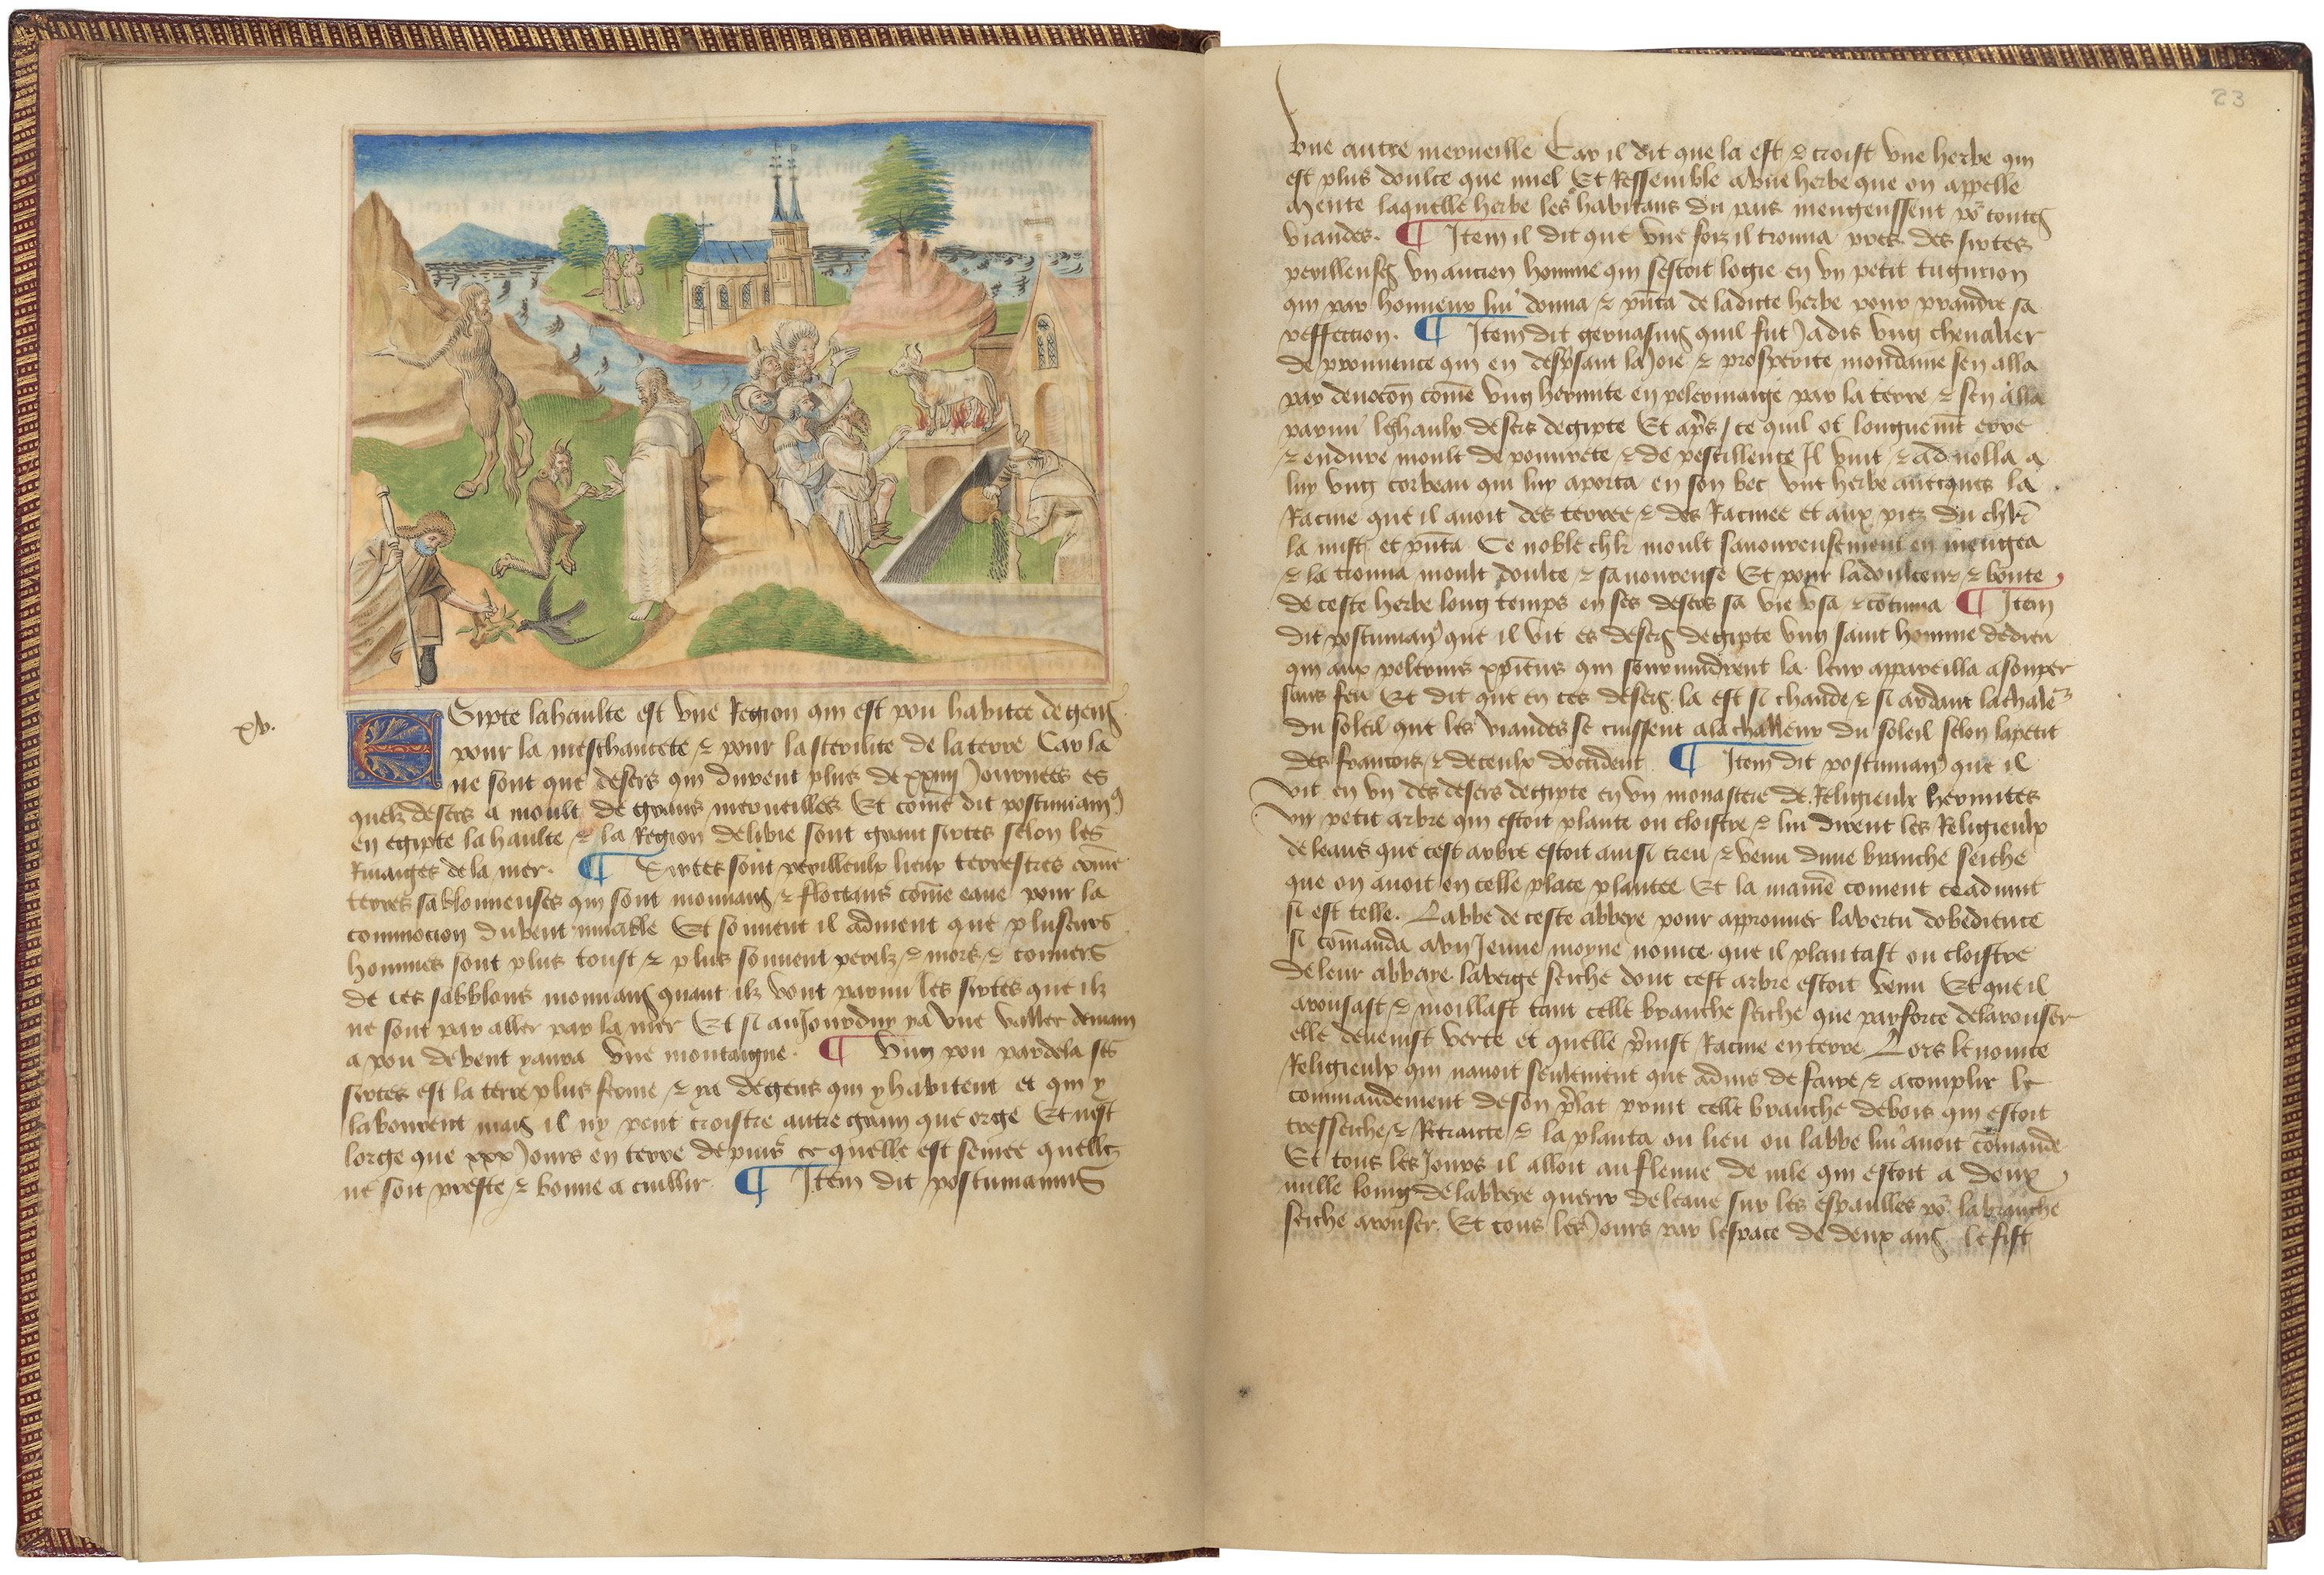 xv.
Egipte la haulte est une Region qui est pou habitee de gens
pour la meschancete & pour la sterilite de la terre Car la
ne sont que desers qui durent plus de xxiiii Journees es
quelz desers a moult de grans merveilles Et come dit postumian9
en egipte la haulte & la Region de libie sont grant sirtes selon les
Rivaiges de la mer. ¶ Sirtes sont perilleulx lieux terrestres come
terres sablonneuses qui sont mouvans & flotans come eaue pour la
commocion du vent muable Et souvent il advient que pluseurs
hommes sont plus toust & plus souvent perilz & mors & couvers
de ces sablons mouvans quant ilz vont parmi les sirtes que ilz
ne sont par aller par la mer Et si aujourduy ya une vallee demain
a pou de vent yaura une montaigne. ¶ Ung pou par dela ses
sirtes est la terre plus ferme & ya de gens qui y habitent et qui y
labourent mais il ny peut croistre autre grain que orge Et nest
lorge que xxx Jours en terre depuis ce quelle est semee quelle
ne soit preste & bonne a cuillir. ¶ Item dit postumianus
23
une autre merveille Car il dit que la est & croist une herbe qui
est plus doulce que miel Et Ressemble a une herbe que on appelle
Mente laquelle herbe les habitans du pais menguessent po toutes
viandes. ¶ Item il dit que une foiz il trouva pres des sirtes
perilleuses un ancien homme qui sestoit logie en un petit tugurion
qui par honneur lui donna & pnta de ladicte herbe pour prandre sa
reffection. ¶ Item dit gervasius quil fut Jadis ung chevalier
de prouvence qui en desprisant la Joie & prosperite mondaine sen alla
par devocon come ung hermite en pelermaige par la terre & sen alla
parmi les haulx desers degipte Et apres ce quil ot longuemt erre
& endure moult de pouvrete & de pestillence Il vint & advolla a
luy ung corbeau qui luy aporta en son bec une herbe avecques la
Racine que il avoit des terree & des Racinee et aux piez du chlr
la mist et pnta Ce noble chlr moult savoureusement en mengea
& la trouva moult doulce & savoureuse Et pour la doulceur & bonte
de ceste herbe long temps en ses desers sa vie usa & cotinua ¶ Item
dit postumian9 que il vit es desers degipte ung saint homme de dieu
qui aux pelerins xpiens qui sourvindrent la leur appareilla a souper
sans feu Et dit que en ces desers la est si chaude & si ardant la chale
du soleil que les viandes se cuissent a la challeur du soleil selon lapetit
des francois & de ceulx doccident ¶ Item dit postumian9 que il
vit en un des desers degipte en un monastere de Religieulx hermites
un petit arbre qui estoit plante ou cloistre & lui dirent les Religieulx
de leans que cest arbre estoit ainsi creu & venu dune branche seiche
que on avoit en celle place plantee Et la maniere coment ce advint
si est telle. Labbe de ceste abbeye pour approuver la vertu dobedience
si comanda a un Jeune moyne novice que il plantast ou cloistre
de leur abbaye la verge seiche dont cest arbre estoit venu Et que il
arousast & moillast tant celle branche seiche que par force de larouser
elle devenist verte et quelle prinst Racine en terre Lors le novice
Religieulx qui navoit seulement que advis de faire & acomplir le
commandement de son prelat print celle branche de bois qui estoit
tresseiche & Retraicte & la planta ou lieu ou labbe lui avoit comande
Et tous les Jours il alloit au fleuve de nile qui estoit a deux
mille loing de labbeye querir de leaue sur les espaulles po la branche
seiche arouser. Et tous les Jours par lespace de deux ans le fist